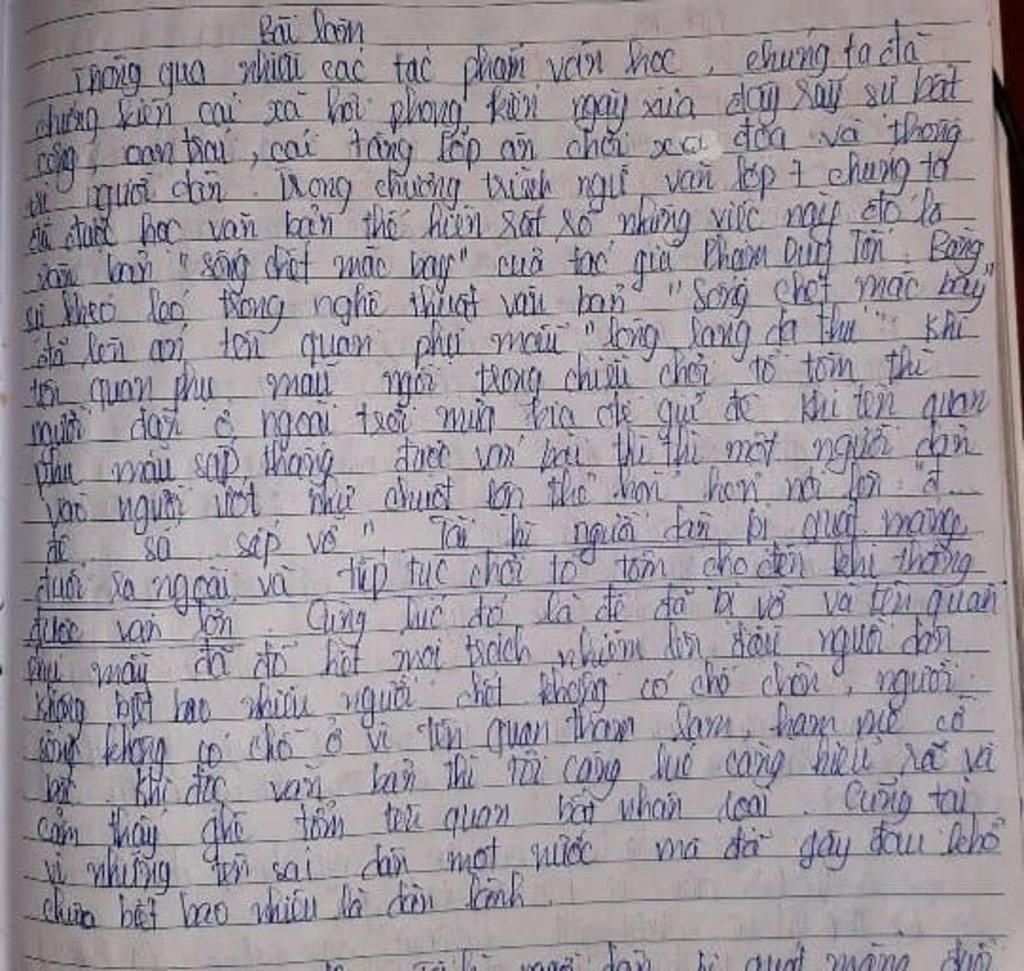 Bài làm
Thông qua nhiều các tác phẩm văn học, chúng ta đã
chứng kiến cái xã hội phong kiến ngày xưa đầy sẫy sự bất
công, oan trái, cái tầng lớp ăn chơi xa đọa và thống
trị người dân. Trong chương trình ngữ văn lớp 7 chúng ta
đã được học văn bản thể hiện sát số những việc này đó là
văn bản "sống chết mặc bay" của tác giả Phạm Duy Tốn. Bằng
sự khéo léo trong nghệ thuật văn bản "sống chết mặc bay"
đã lên án tên quan phụ mẫu "lòng lang dạ thú". Khi
tên quan phụ mẫu ngồi trong chiếu chơi tổ tôm thì
người dân ở ngoài trời mưa kia để giữ đê. Khi tên quan
phụ mẫu sắp thắng được ván bài thì thì một người dân
vào người ướt như chuột lên thở hổn hển nói lên "đ...
đê sa sắp vỡ". Tức thì người dân bị quát mắng
đuổi ra ngoài và tiếp tục chơi tổ tôm cho đến khi thắng
được ván lớn. Cùng lúc đó là đê đã bị vỡ và tên quan
phụ mẫu đã đổ hết mọi trách nhiệm lên đầu người dân
không biết bao nhiêu người chết không có chỗ chôn, người
sống không có chỗ ở vì tên quan tham lam, ham mê cờ
bạc. Khi đọc văn bản thì tôi càng lúc càng hiểu rõ và
cảm thấy ghê tởm tên quan bất nhân loại. Cũng tại
vì những tên sai dân một nước mà đã gây đau khổ
chưa biết bao nhiêu là dân lành.